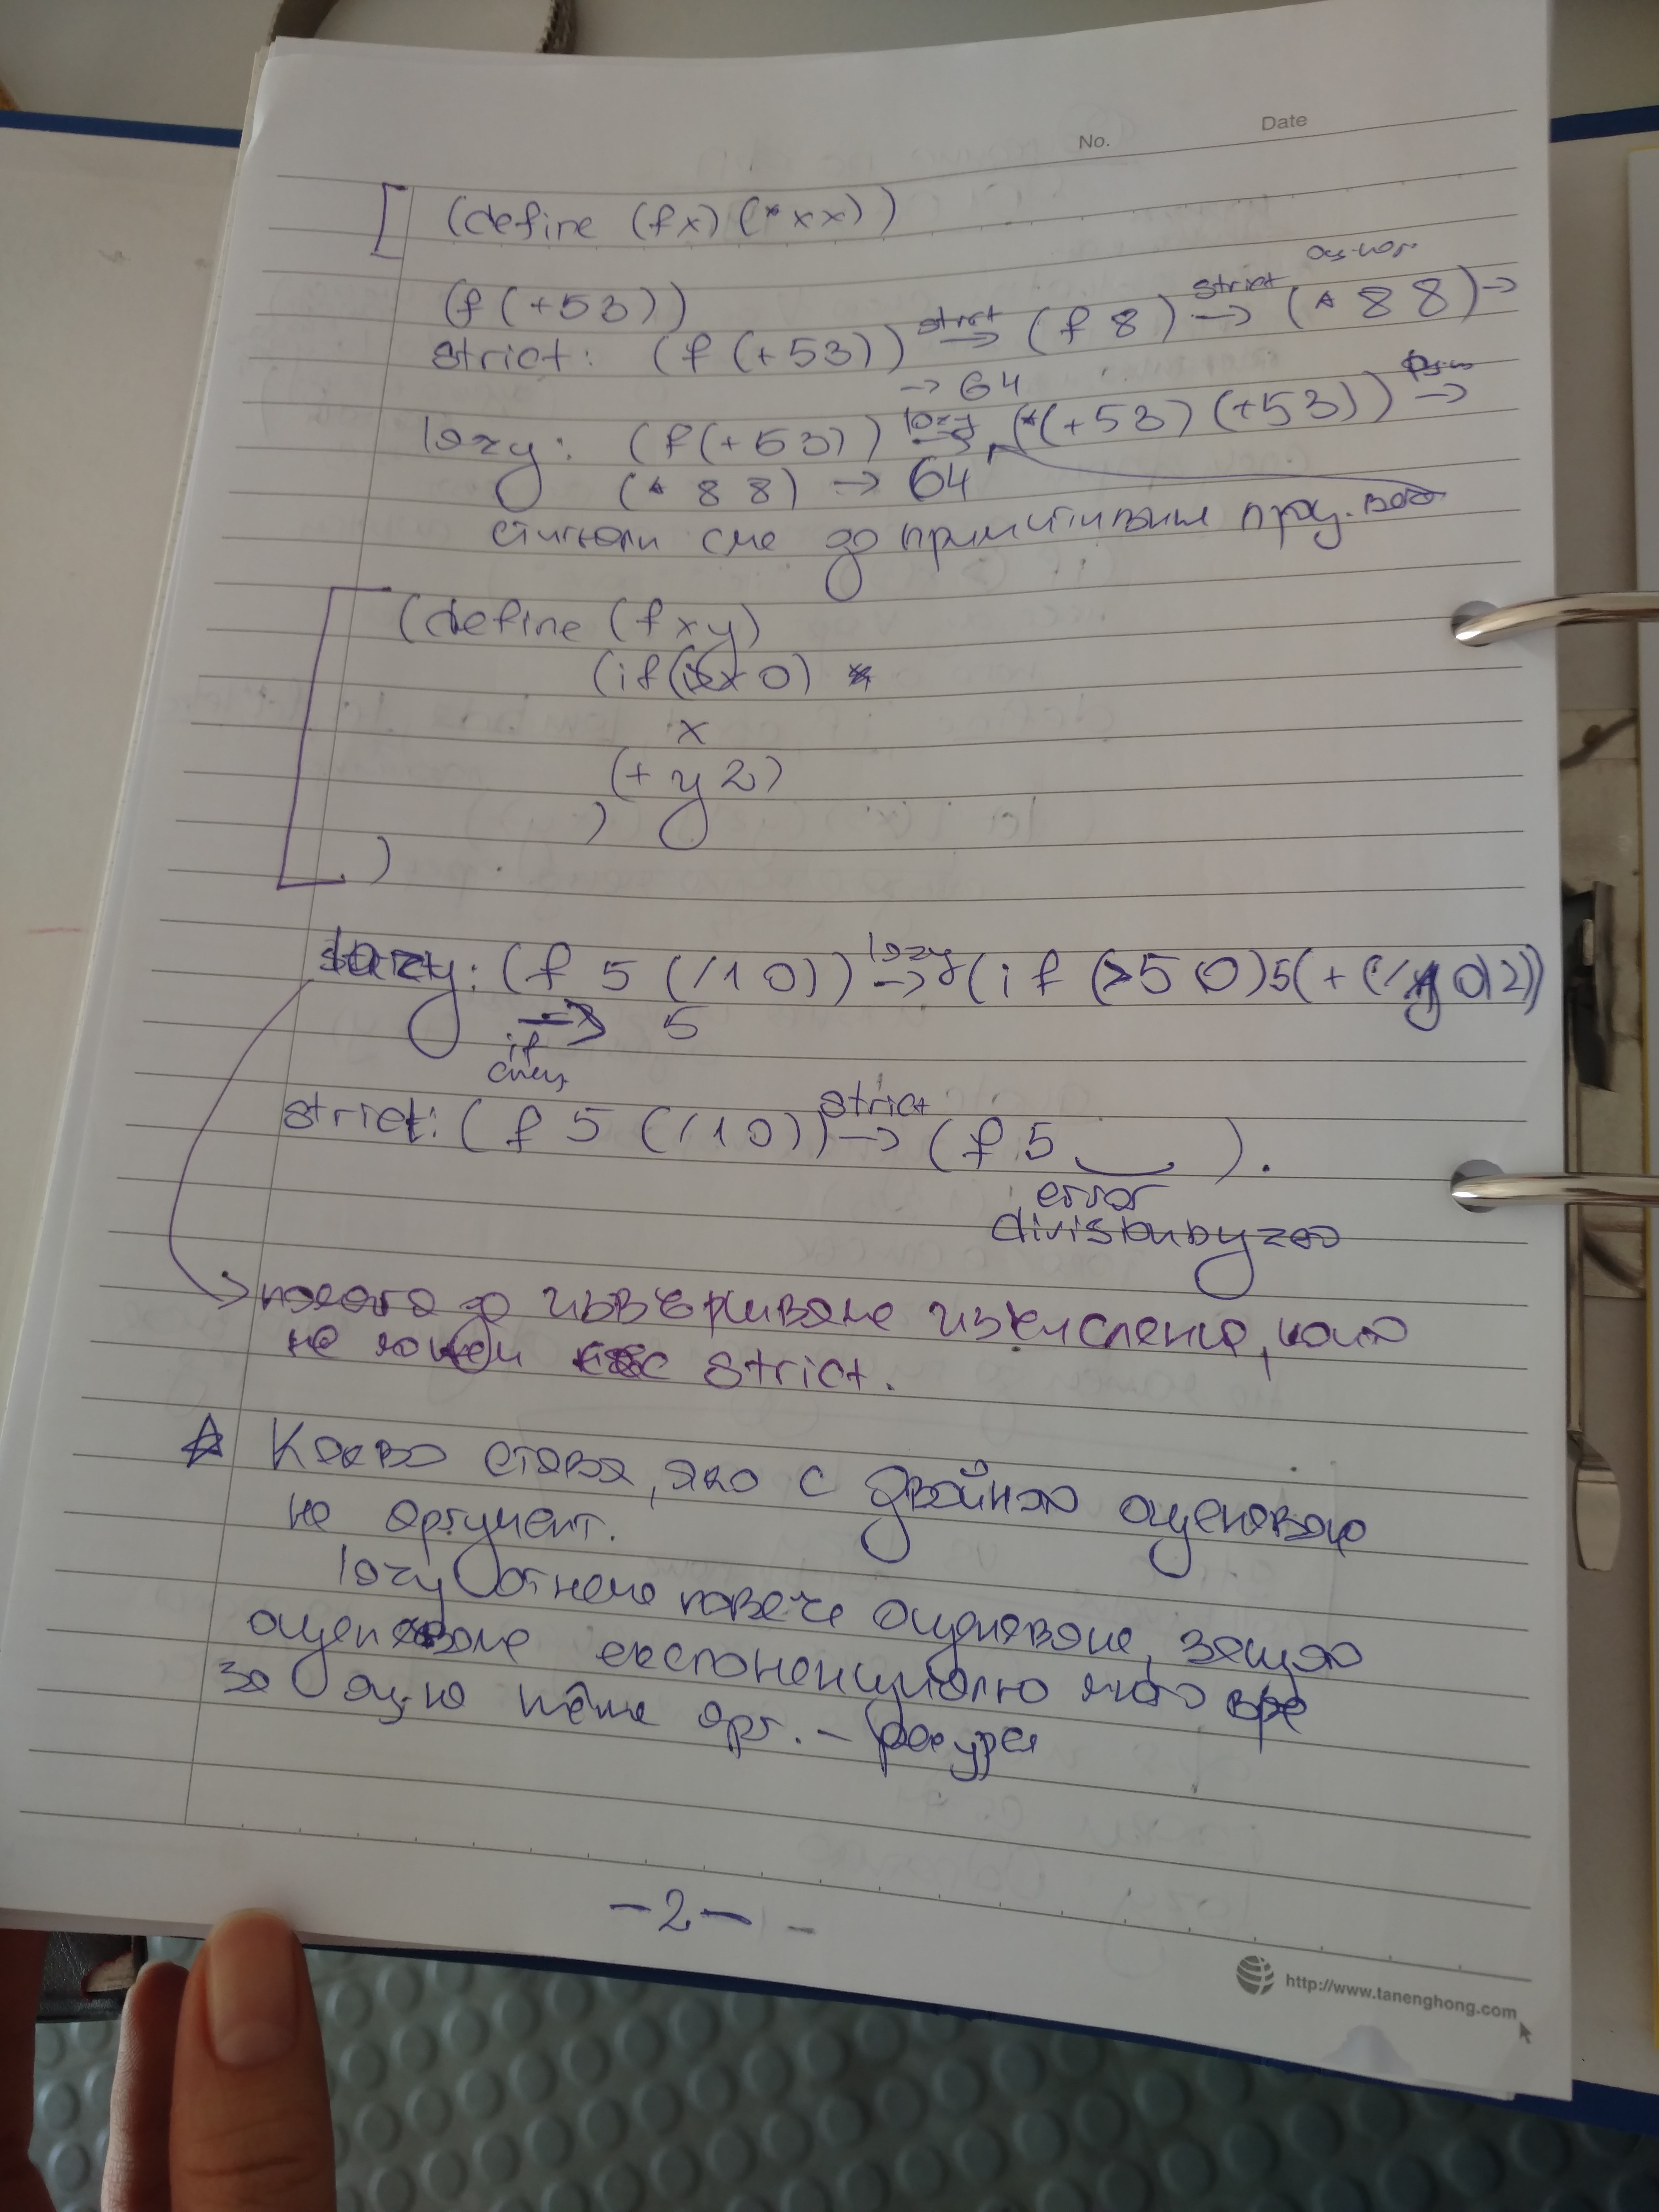 No. Date
(define (f x) (* x x))
(f (+ 5 3))
strict: (f (+ 5 3)) strict → (f 8) strict → (* 8 8) →
→ 64
lazy: (f (+ 5 3)) lazy → (* (+ 5 3) (+ 5 3)) →
(* 8 8) → 64
стигнали сме до примитивни проц. вече
(define (f x y)
(if (> x 0)
x
(+ y 2)
)
)
lazy: (f 5 (/ 1 0)) lazy → (if (> 5 0) 5 (+ (/ 1 0) 2))
→ 5
if
спец
strict: (f 5 (/ 1 0)) strict → (f 5 ).
error
division by zero
до извършване изчисления, които
не можем с strict.
☆ Какво става, ако с двойно оценяване
на аргумент.
lazy отнема повече оценяване, защото
оценяване експоненциално много
за арг. – рекурсия
-2-
http://www.tanenghong.com